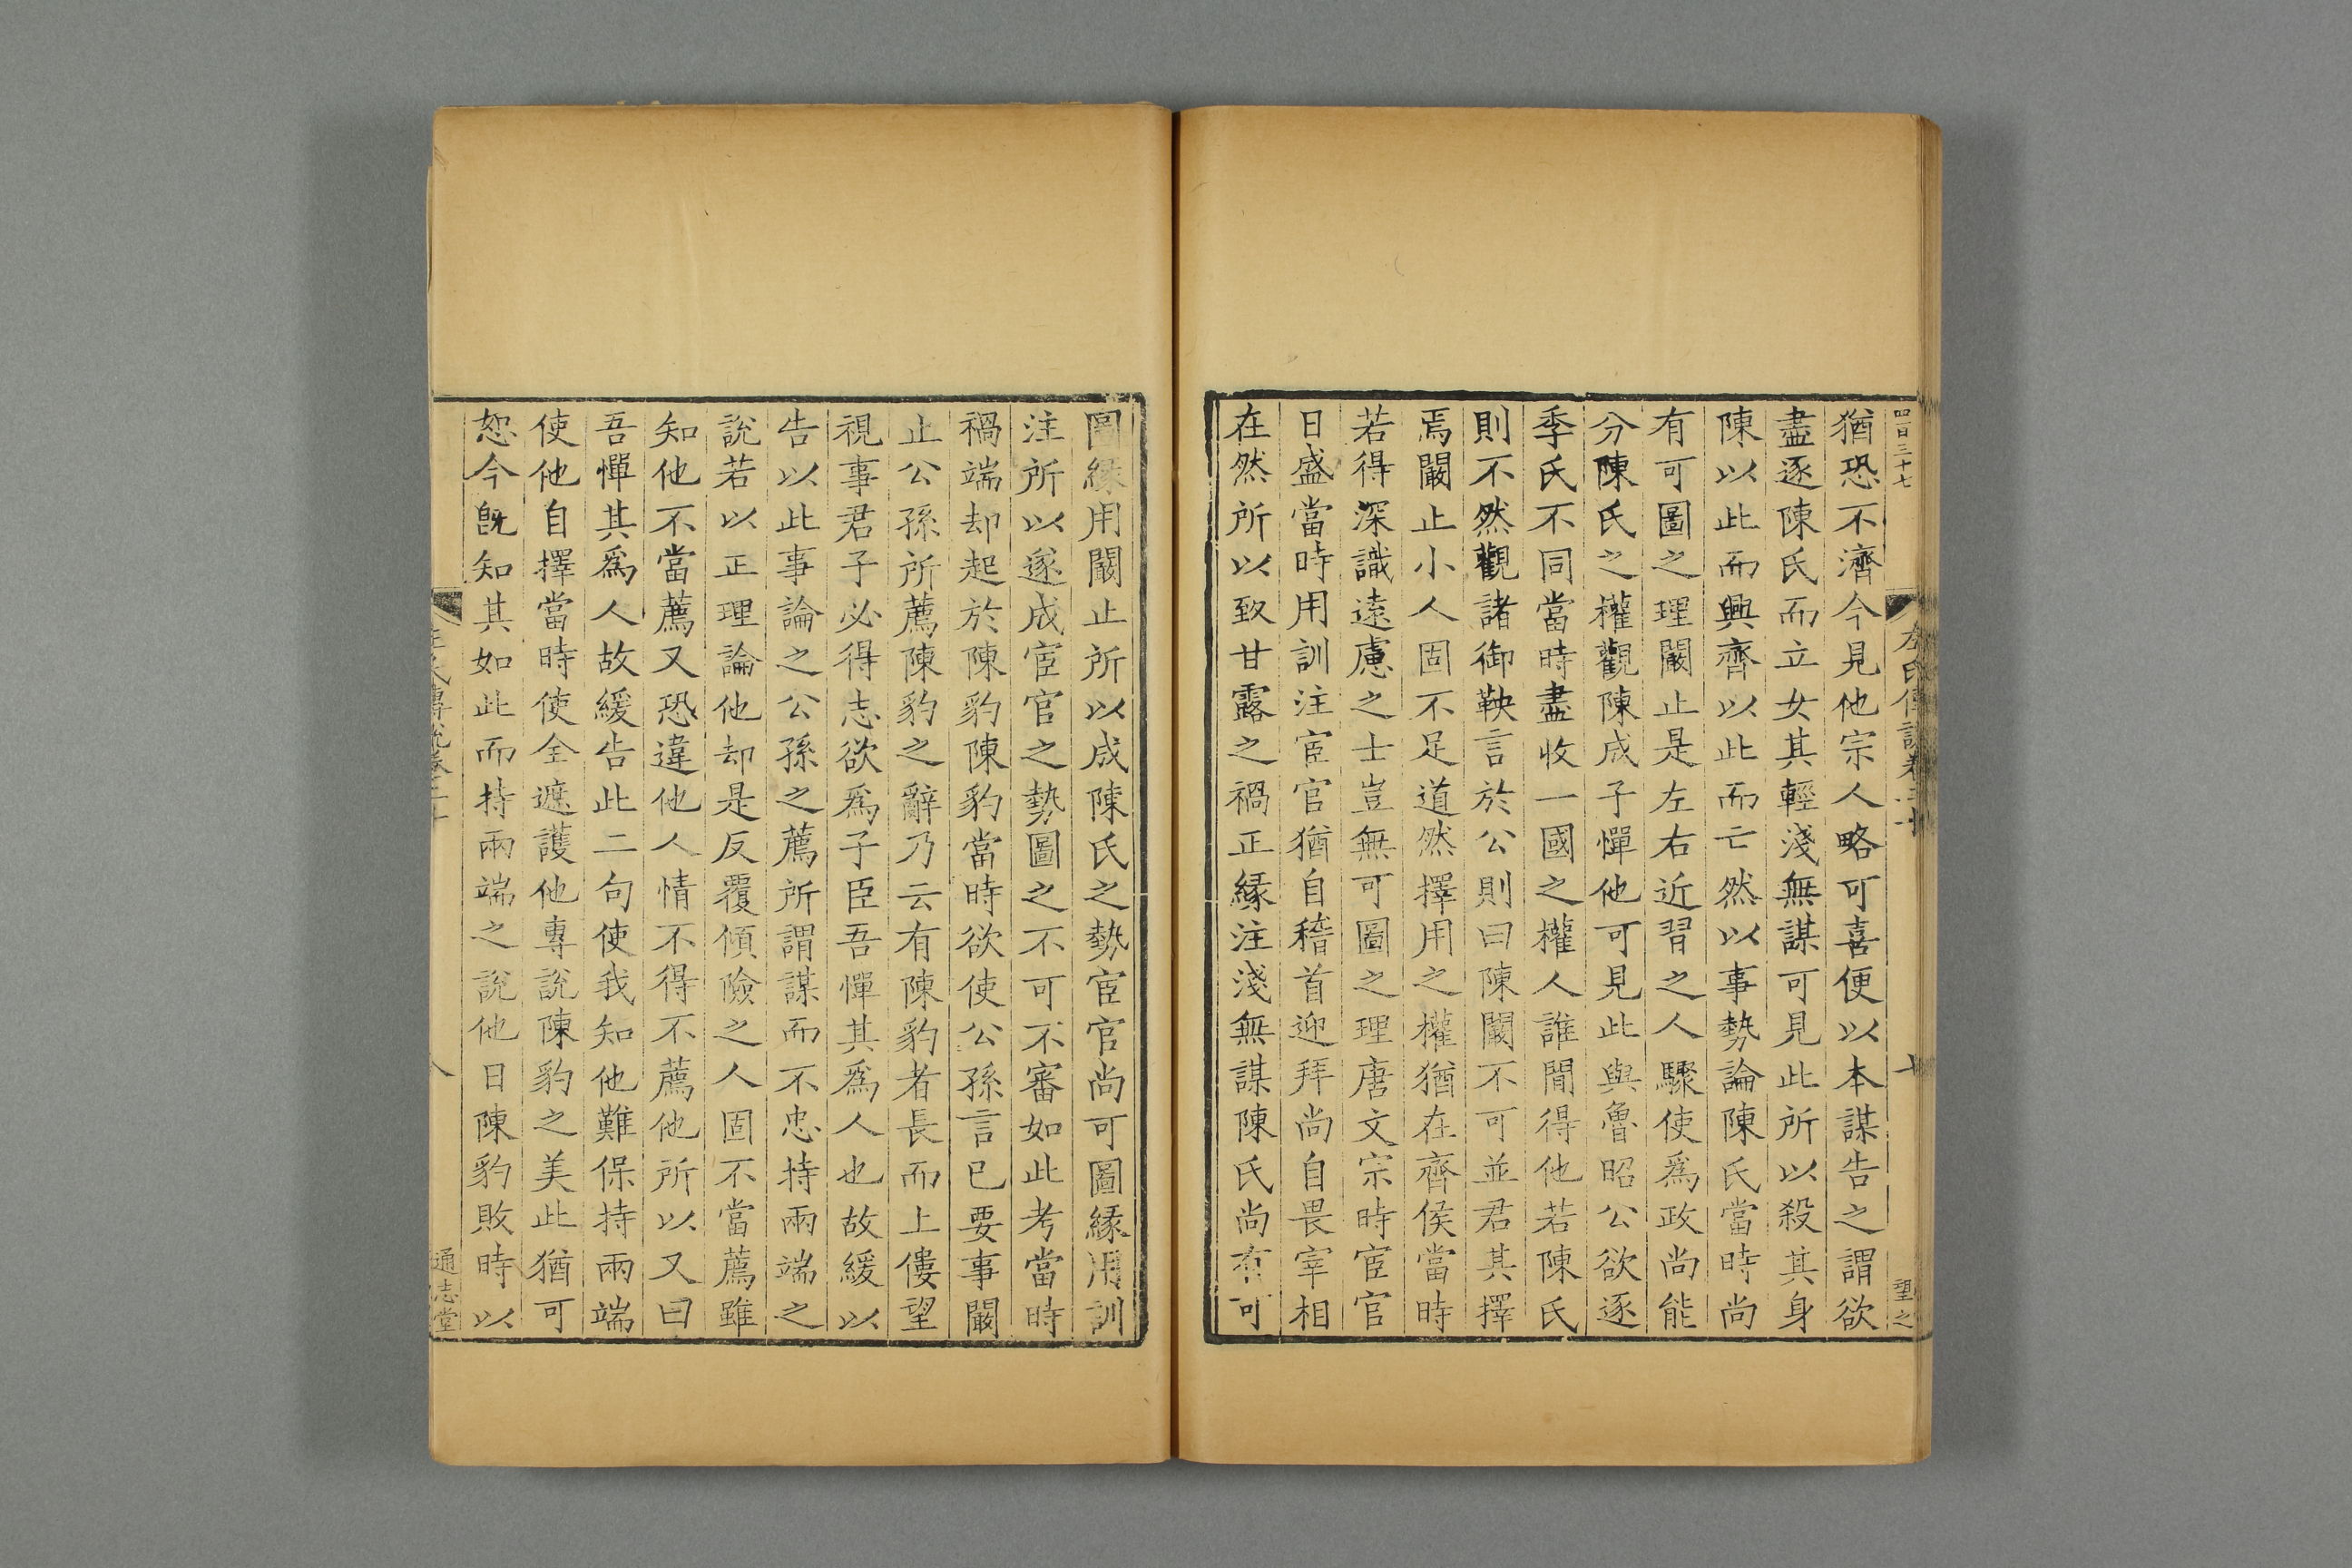 四百三十七
左氏傳說卷二十
望之
猶恐不濟今見他宗人略可喜便以本謀告之謂欲
盡逐陳氏而立女其輕淺無謀可見此所以殺其身
陳以此而興齊以此而亡然以事勢論陳氏當時尚
有可圖之理闞止是左右近習之人驟使爲政尚能
分陳氏之權觀陳成子憚他可見此與魯昭公欲逐
季氏不同當時盡收一國之權人誰閒得他若陳氏
則不然觀諸御鞅言於公則曰陳闞不可並君其擇
焉闞止小人固不足道然擇用之權猶在齊侯當時
若得深識遠慮之士豈無可圖之理唐文宗時宦官
日盛當時用訓注宦官猶自稽首迎拜尚自畏宰相
在然所以致甘露之禍正緣注淺無謀陳氏尚有可
圖緣用闞止所以成陳氏之勢宦官尚可圖緣用訓
注所以遂成宦官之勢圖之不可不審如此考當時
禍端却起於陳豹陳豹當時欲使公孫言已要事闞
止公孫所薦陳豹之辭乃云有陳豹者長而上僂望
視事君子必得志欲爲子臣吾憚其爲人也故緩以
告以此事論之公孫之薦所謂謀而不忠持兩端之
說若以正理論他却是反覆傾險之人固不當薦雖
知他不當薦又恐違他人情不得不薦他所以又曰
吾憚其爲人故緩告此二句使我知他難保持兩端
使他自擇當時使全遮護他專說陳豹之美此猶可
恕今旣知其如此而持兩端之說他日陳豹敗時以
左氏傳說卷二十
八
通志堂